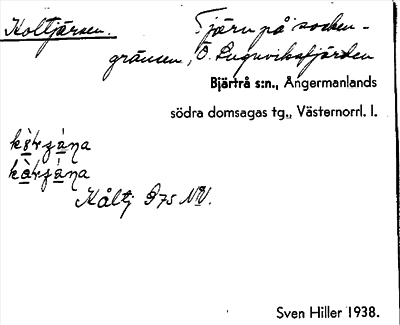 Koltjärsen. Tjärn på socken-
gränsen, Ö. Lugnviksfjärden
Bjärtrå s:n., Ångermanlands
södra domsagas tg., Västernorrl. l.
Kåltj 975 NV.
Sven Hiller 1938.